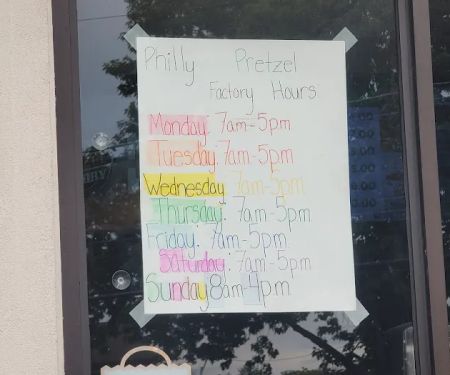 Philly Pretzel
Factory Hours
Monday: 7am-5pm
Tuesday: 7am-5pm
Wednesday: 7am-5pm
Thursday: 7am-5pm
Friday: 7am-5pm
Saturday: 7am-5pm
Sunday 8am-4pm